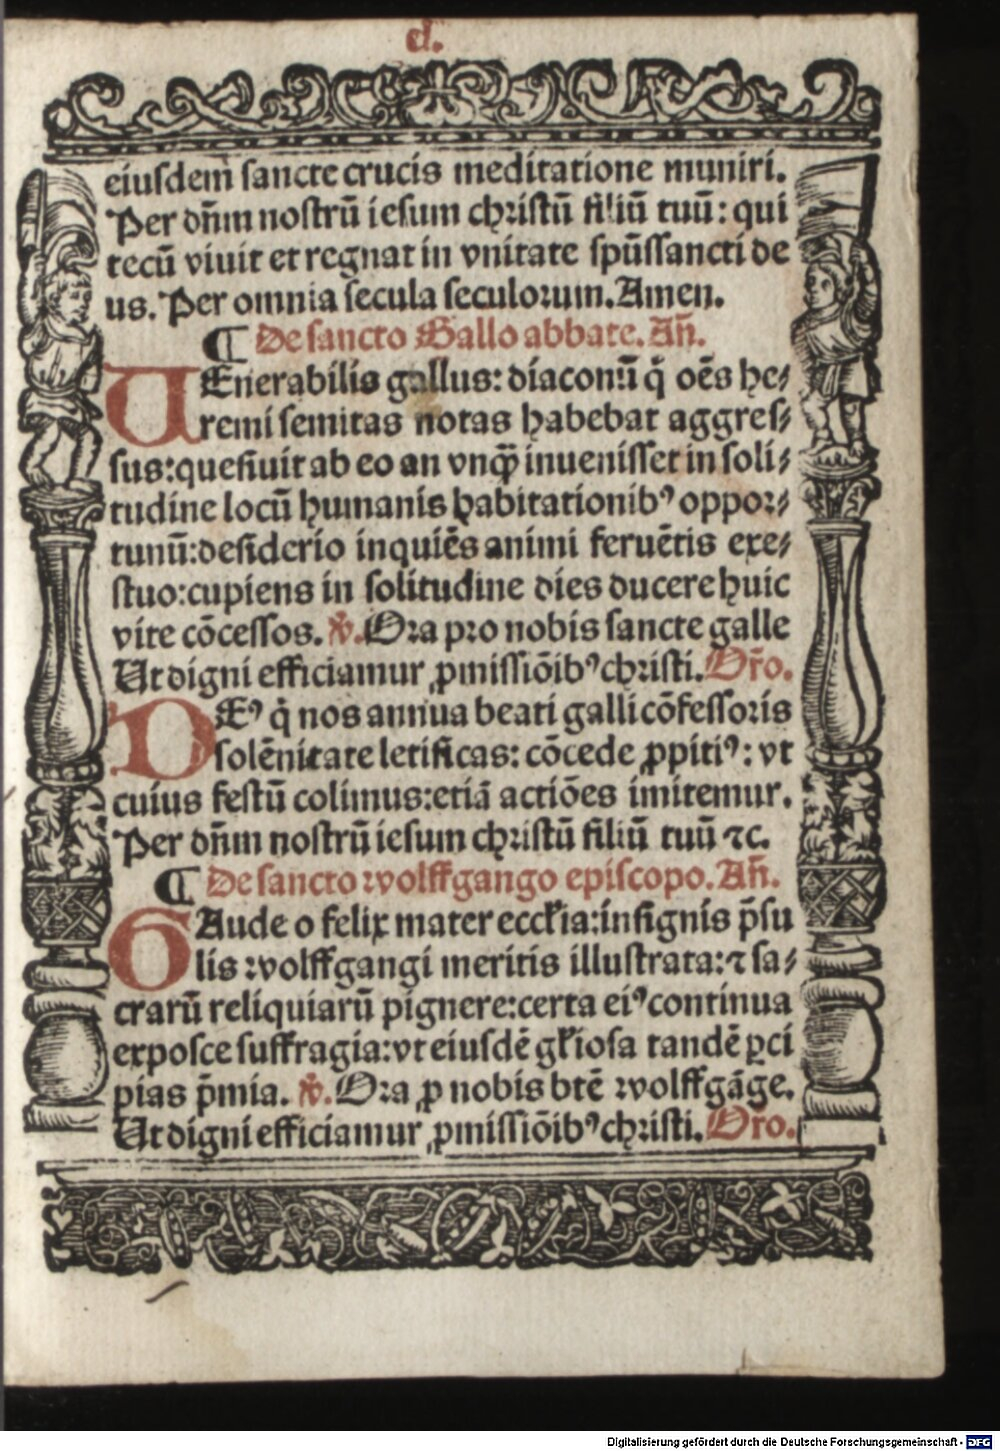 cl.
eiusdem sancte crucis meditatione muniri.
Per dñm nostrū iesum christū filiū tuū: qui
tecū viuit et regnat in vnitate spūssancti de
us. Per omnia secula seculorum. Amen.
¶ De sancto Gallo abbate. Añ.
VEnerabilis gallus: diaconū q̄ oēs he⸗
remi semitas notas habebat aggres⸗
sus: quesiuit ab eo an vnqꝫ̄ inuenisset in soli⸗
tudine locū humanis habitationibꝰ oppor⸗
tunū: desiderio inquiēs animi feruētis exe⸗
stuo: cupiens in solitudine dies ducere huic
vite cōcessos. ℣. Ora pro nobis sancte galle
Ut digni efficiamur ꝓmissiōibꝰ christi. Oro̅.
DEꝰ q̄ nos annua beati galli cōfessoris
solēnitate letificas: cōcede ꝓpitiꝰ: vt
cuius festū colimus: etiā actiōes imitemur.
Per dñm nostrū iesum christū filiū tuū ⁊c.
¶ De sancto wolffgango episcopo. Añ.
GAude o felix mater eccl̄ia: insignis p̄su
lis wolffgangi meritis illustrata: ⁊ sa⸗
crarū reliquiarū pignere: certa eiꝰ continua
exposce suffragia: vt eiusdē gl̄iosa tandē ꝑci
pias p̄mia. ℣. Ora ꝓ nobis btē wolffgāge.
Ut digni efficiamur ꝓmissiōibꝰ christi. Oro̅.
Digitalisierung gefördert durch die Deutsche Forschungsgemeinschaft - DFG